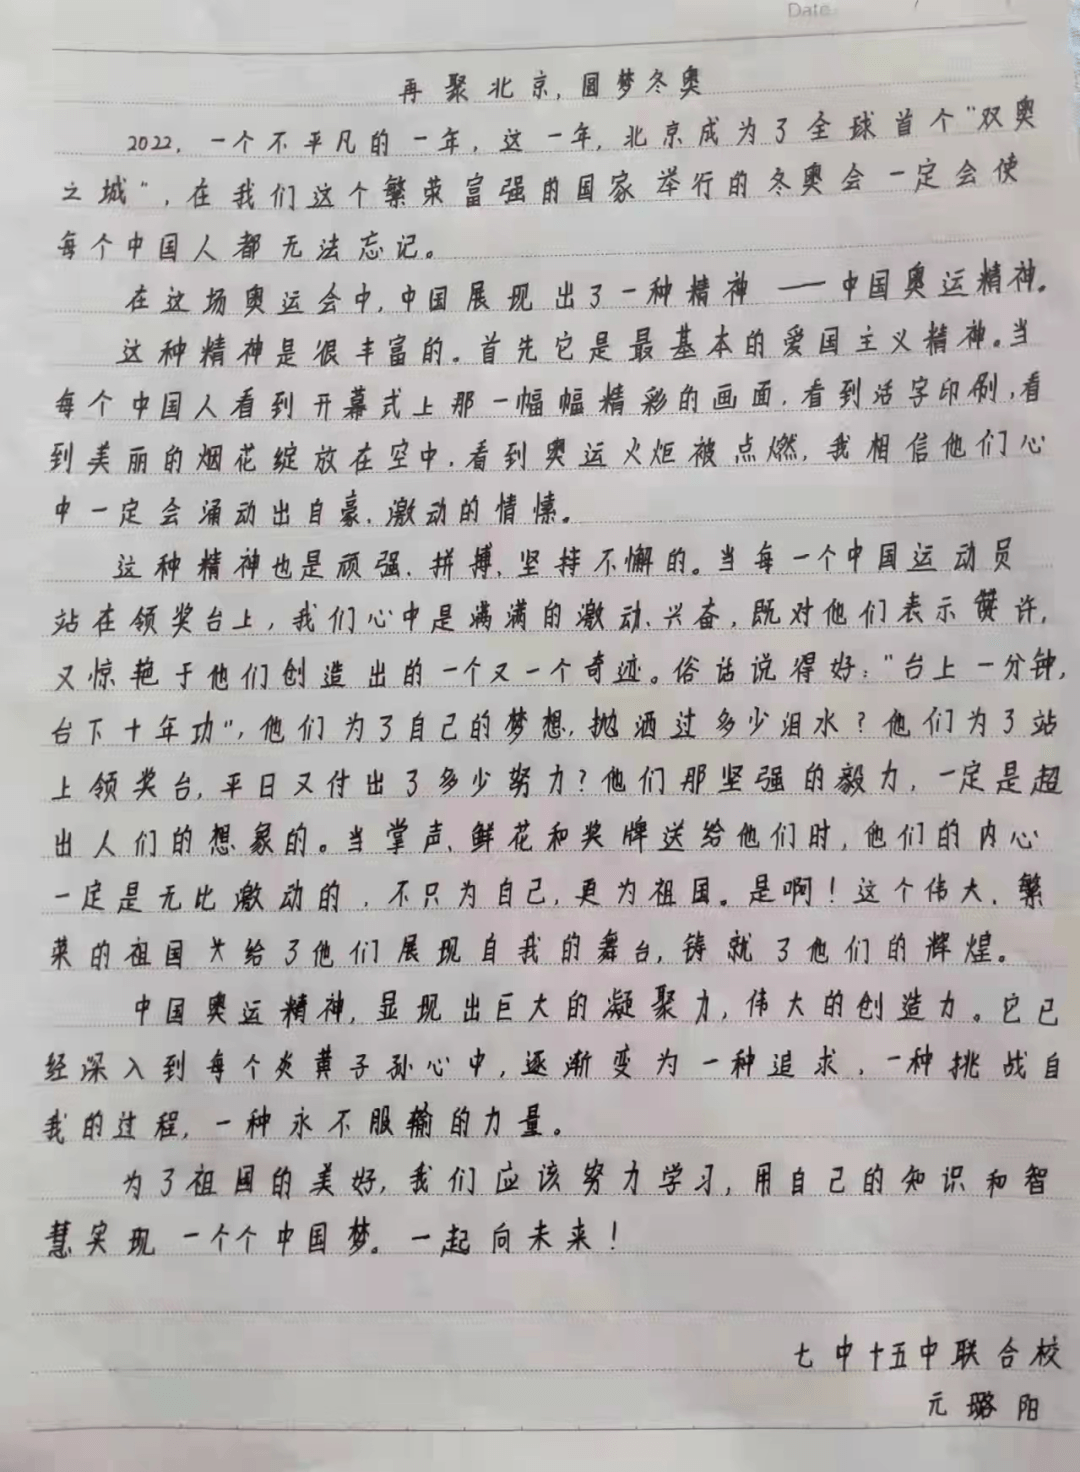 Date
再聚北京,圆梦冬奥
2022,一个不平凡的一年,这一年,北京成为了全球首个“双奥
之城”,在我们这个繁荣富强的国家举行的冬奥会一定会使
每个中国人都无法忘记。
在这场奥运会中,中国展现出了一种精神——中国奥运精神。
这种精神是很丰富的。首先它是最基本的爱国主义精神。当
每个中国人看到开幕式上那一幅幅精彩的画面,看到活字印刷,看
到美丽的烟花绽放在空中,看到奥运火炬被点燃,我相信他们心
中一定会涌动出自豪、激动的情愫。
这种精神也是顽强、拼搏、坚持不懈的。当每一个中国运动员
站在领奖台上,我们心中是满满的激动、兴奋,既对他们表示赞许,
又惊艳于他们创造出的一个又一个奇迹。俗话说得好:“台上一分钟,
台下十年功”,他们为了自己的梦想,抛洒过多少泪水?他们为了站
上领奖台,平日又付出了多少努力?他们那坚强的毅力,一定是超
出人们的想象的。当掌声、鲜花和奖牌送给他们时,他们的内心
一定是无比激动的,不只为自己,更为祖国。是啊!这个伟大、繁
荣的祖国给了他们展现自我的舞台,铸就了他们的辉煌。
中国奥运精神,显现出巨大的凝聚力,伟大的创造力。它已
经深入到每个炎黄子孙心中,逐渐变为一种追求,一种挑战自
我的过程,一种永不服输的力量。
为了祖国的美好,我们应该努力学习,用自己的知识和智
慧实现一个个中国梦。一起向未来!
七中十五中联合校
元璐阳